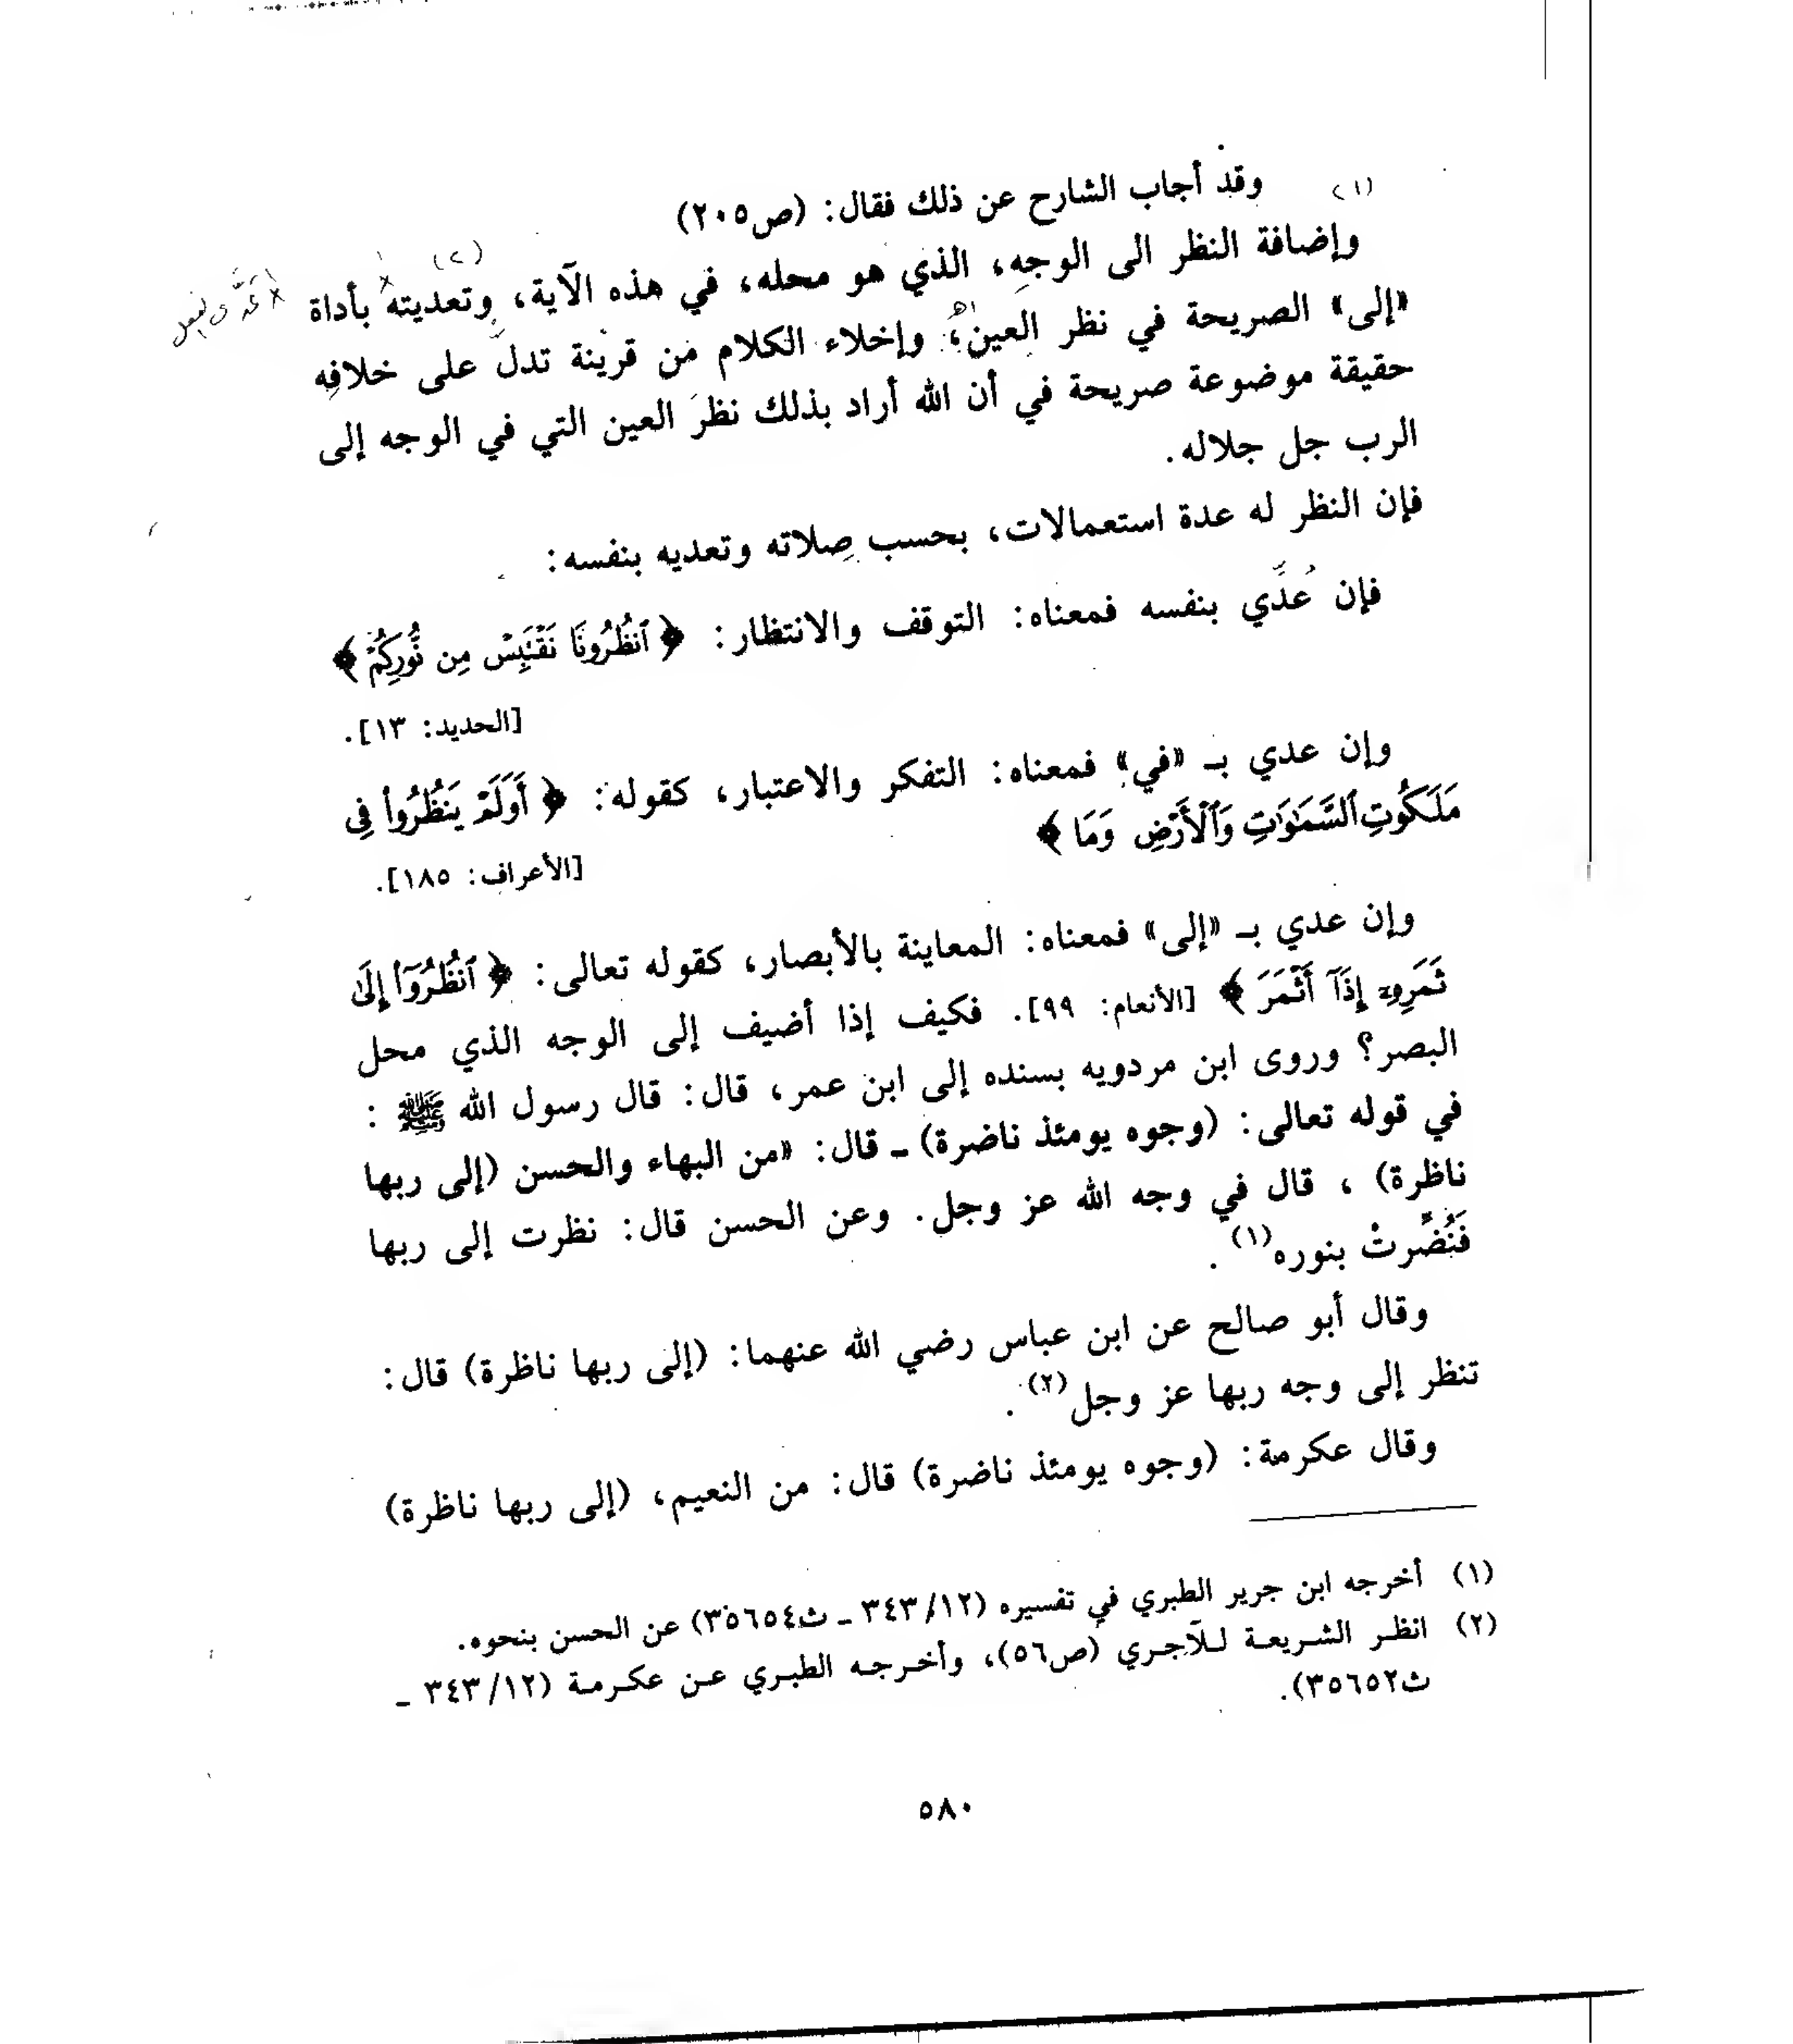 (١) وقد أجاب الشارح عن ذلك فقال: (ص٢٠٥)
(٢)
وإضافة النظر الى الوجهِ، الذي هو محله، في هذه الآية، وتعديته بأداة
«إلى» الصريحة في نظر العين، وإخلاء الكلام من قرينة تدل على خلافِه
حقيقة موضوعة صريحة في أن الله أراد بذلك نظرَ العين التي في الوجه إلى
الرب جل جلاله.
فإن النظر له عدة استعمالات، بحسب صِلاته وتعديه بنفسه:
فإن عُدِّي بنفسه فمعناه: التوقف والانتظار: ﴿ ٱنظُرُونَا نَقْتَبِسْ مِن نُّورِكُمْ ﴾
[الحديد: ١٣].
وإن عدي بـ «في» فمعناه: التفكر والاعتبار، كقوله: ﴿ أَوَلَمْ يَنظُرُوا۟ فِى
مَلَكُوتِ ٱلسَّمَـٰوَٰتِ وَٱلْأَرْضِ وَمَا ﴾
[الأعراف: ١٨٥].
وإن عدي بـ «إلى» فمعناه: المعاينة بالأبصار، كقوله تعالى: ﴿ ٱنظُرُوٓا۟ إِلَىٰ
ثَمَرِهِۦٓ إِذَآ أَثْمَرَ ﴾ [الأنعام: ٩٩]. فكيف إذا أضيف إلى الوجه الذي محل
البصر؟ وروى ابن مردويه بسنده إلى ابن عمر، قال: قال رسول الله ﷺ :
في قوله تعالى: (وجوه يومئذ ناضرة) ـ قال: «من البهاء والحسن (إلى ربها
ناظرة) ، قال في وجه الله عز وجل. وعن الحسن قال: نظرت إلى ربها
فَنُضِّرتْ بنوره(١) .
وقال أبو صالح عن ابن عباس رضي الله عنهما: (إلى ربها ناظرة) قال:
تنظر إلى وجه ربها عز وجل(٢) .
وقال عكرمة: (وجوه يومئذ ناضرة) قال: من النعيم، (إلى ربها ناظرة)
(١) أخرجه ابن جرير الطبري في تفسيره (٣٤٣/١٢ ـ ث٣٥٦٥٤) عن الحسن بنحوه.
(٢) انظر الشريعة للآجري (ص٥٦)، وأخرجه الطبري عن عكرمة (٣٤٣/١٢ ـ
ث٣٥٦٥٢).
٥٨٠